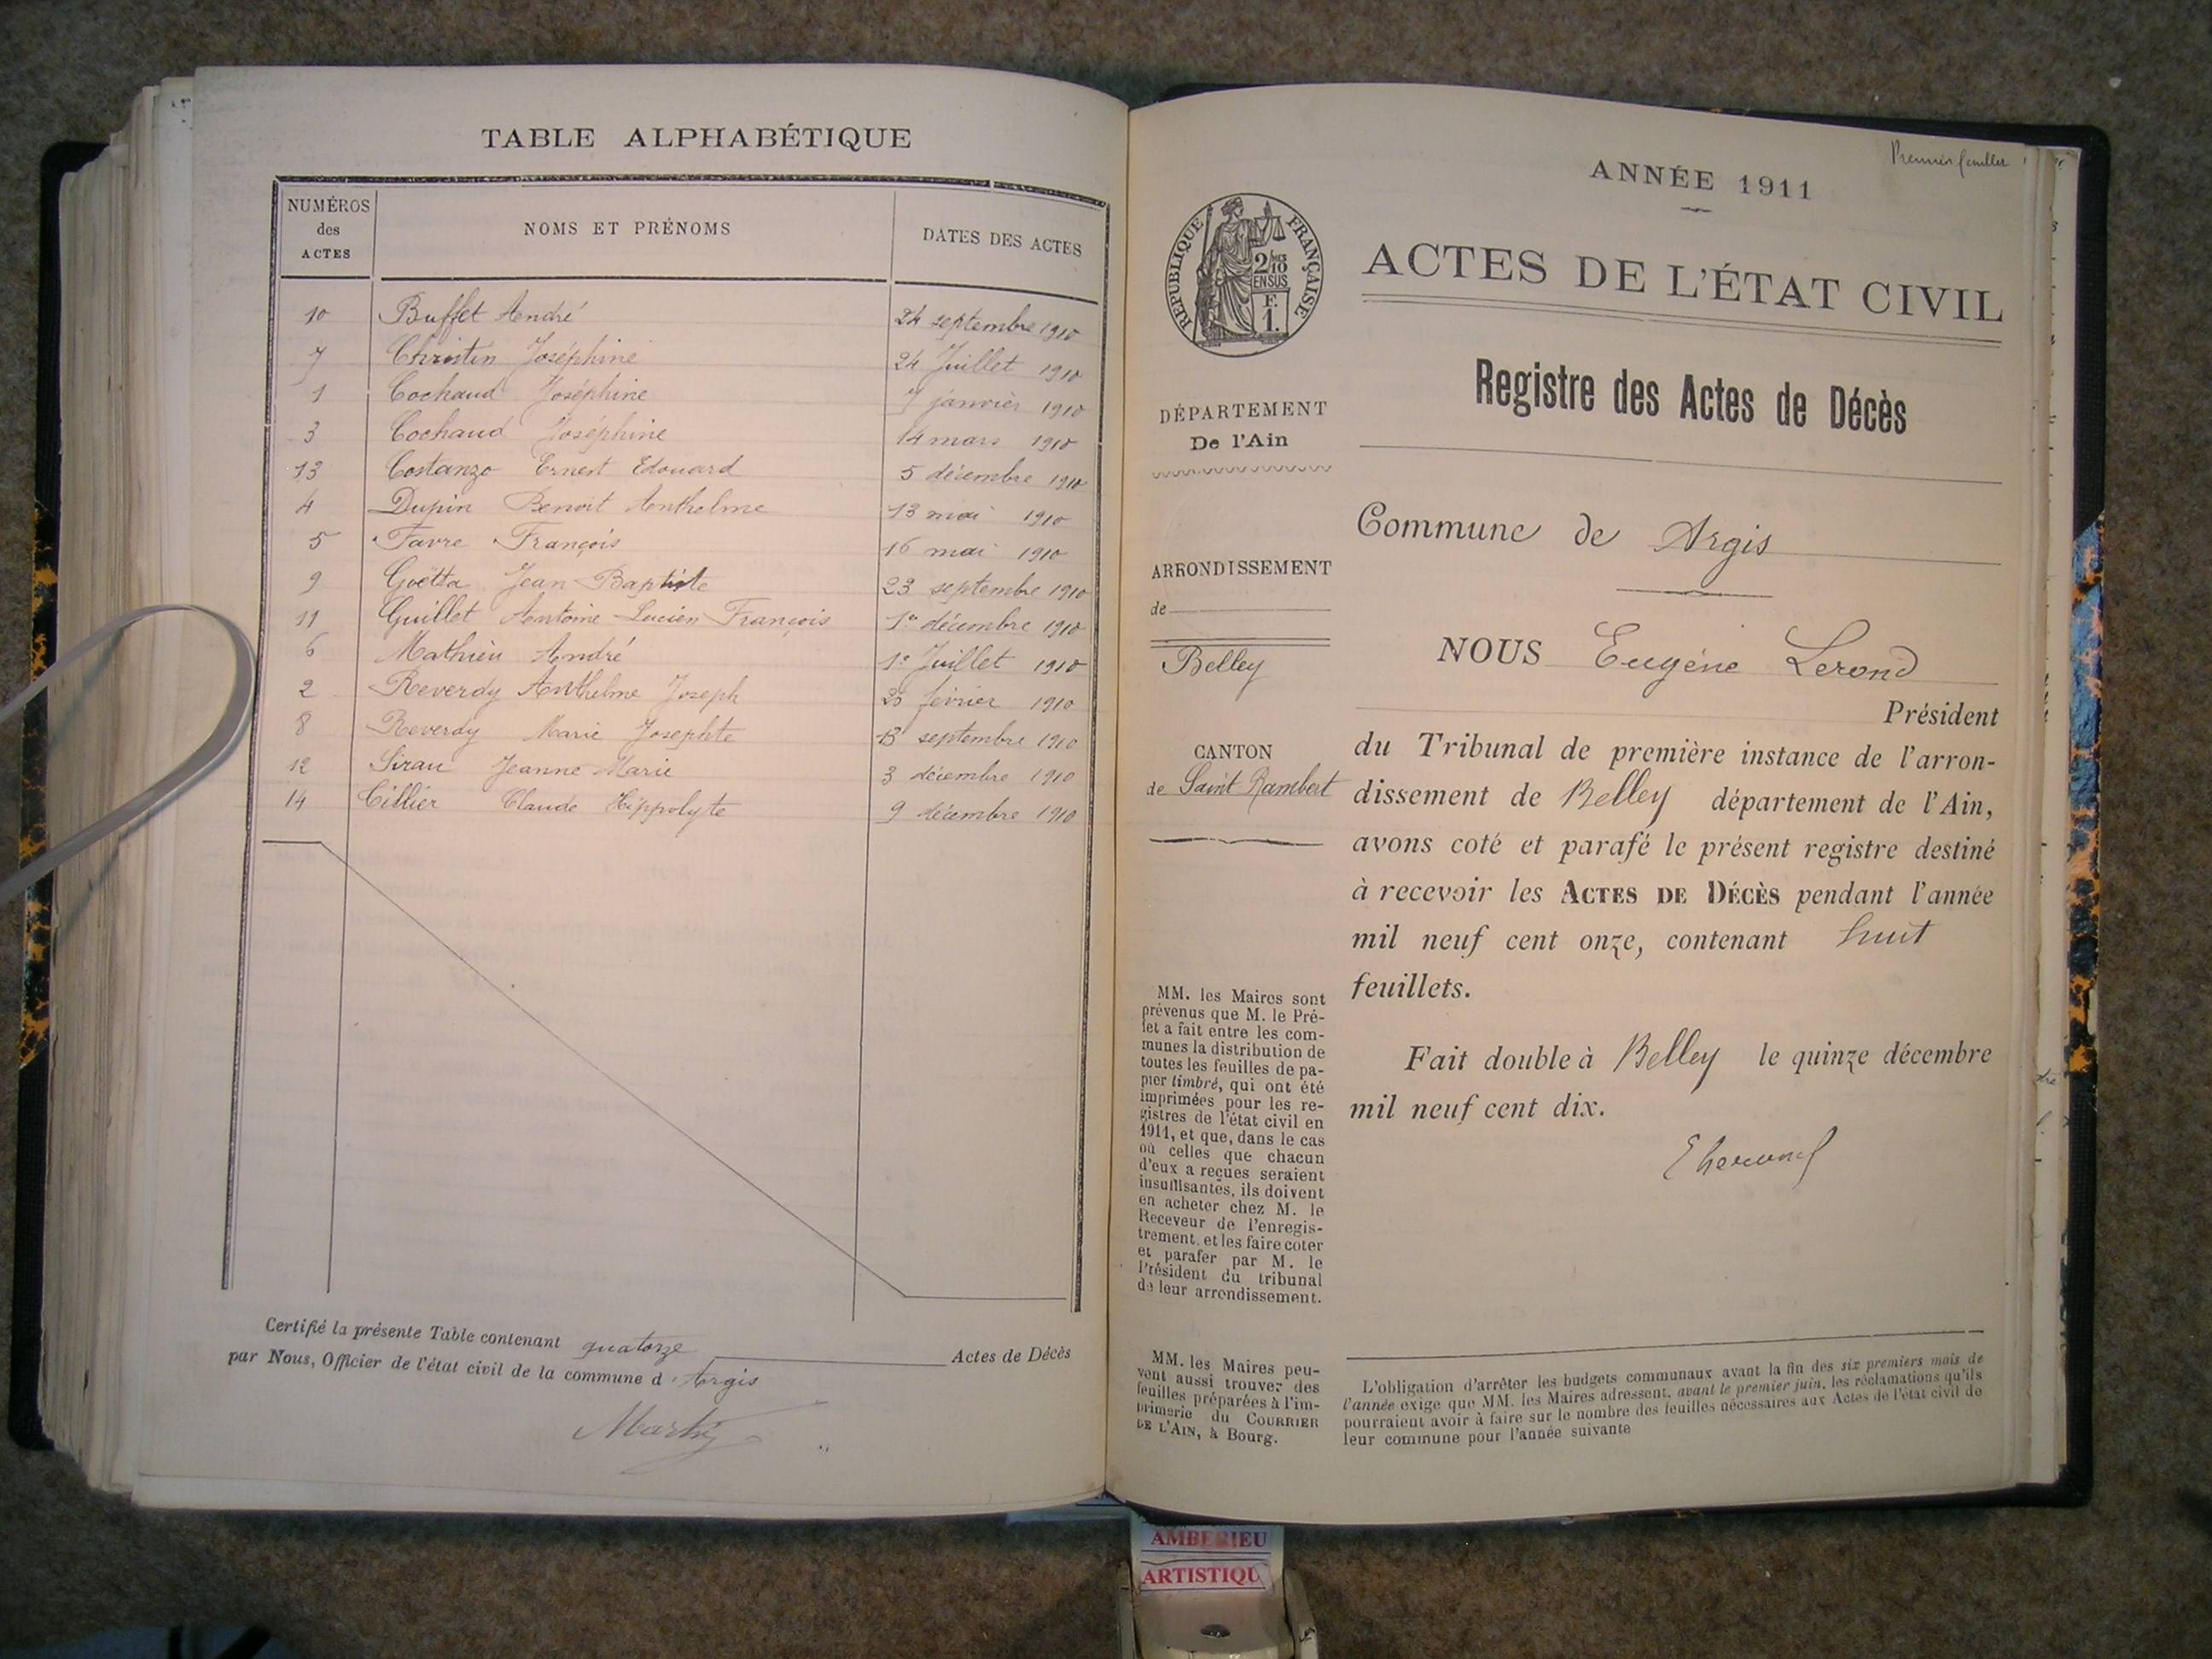 TABLE ALPHABÉTIQUE
NUMÉROS
des
ACTES
NOMS ET PRÉNOMS
DATES DES ACTES
10 Buffet André 24 septembre 1910
7 Christin Joséphine 24 Juillet 1910
1 Cochaud Joséphine 7 janvier 1910
3 Cochaud Joséphine 14 mars 1910
13 Costanzo Ernest Edouard 5 décembre 1910
4 Dupin Benoit Anthelme 13 mai 1910
5 Favre François 16 mai 1910
9 Goëtta Jean-Baptiste 23 septembre 1910
11 Guillet Antoine Lucien François 1er décembre 1910
6 Mathieu André 1er Juillet 1910
2 Reverdy Anthelme Joseph février 1910
8 Reverdy Marie Josephte 13 septembre 1910
12 Sirau Jeanne Marie 3 décembre 1910
14 Cillier Claude Hippolyte 9 décembre 1910
Certifié la présente Table contenant quatorze Actes de Décès
par Nous, Officier de l'état civil de la commune d'Argis
Premier feuillet
ANNÉE 1911
RÉPUBLIQUE FRANÇAISE
2/10 EN SUS
F.
1.
ACTES DE L'ÉTAT CIVIL
Registre des Actes de Décès
DÉPARTEMENT
De l'Ain
ARRONDISSEMENT
de
Belley
CANTON
de Saint Rambert
MM. les Maires sont
prévenus que M. le Pré-
fet a fait entre les com-
munes la distribution de
toutes les feuilles de pa-
pier timbré, qui ont été
imprimées pour les re-
gistres de l'état civil en
1911, et que, dans le cas
où celles que chacun
d'eux a reçues seraient
insuffisantes, ils doivent
en acheter chez M. le
Receveur de l'enregis-
trement, et les faire coter
et parafer par M. le
Président du tribunal
de leur arrondissement.
MM. les Maires peu-
vent aussi trouver des
feuilles préparées à l'im-
primerie du COURRIER
DE L'AIN, à Bourg.
Commune de Argis
NOUS Eugène Lerond
Président
du Tribunal de première instance de l'arron-
dissement de Belley département de l'Ain,
avons coté et parafé le présent registre destiné
à recevoir les ACTES DE DÉCÈS pendant l'année
mil neuf cent onze, contenant huit
feuillets.
Fait double à Belley le quinze décembre
mil neuf cent dix.
L'obligation d'arrêter les budgets communaux avant la fin des six premiers mois de
l'année exige que MM. les Maires adressent, avant le premier juin, les réclamations qu'ils
pourraient avoir à faire sur le nombre des feuilles nécessaires aux Actes de l'état civil de
leur commune pour l'année suivante
AMBERIEU
ARTISTIQU